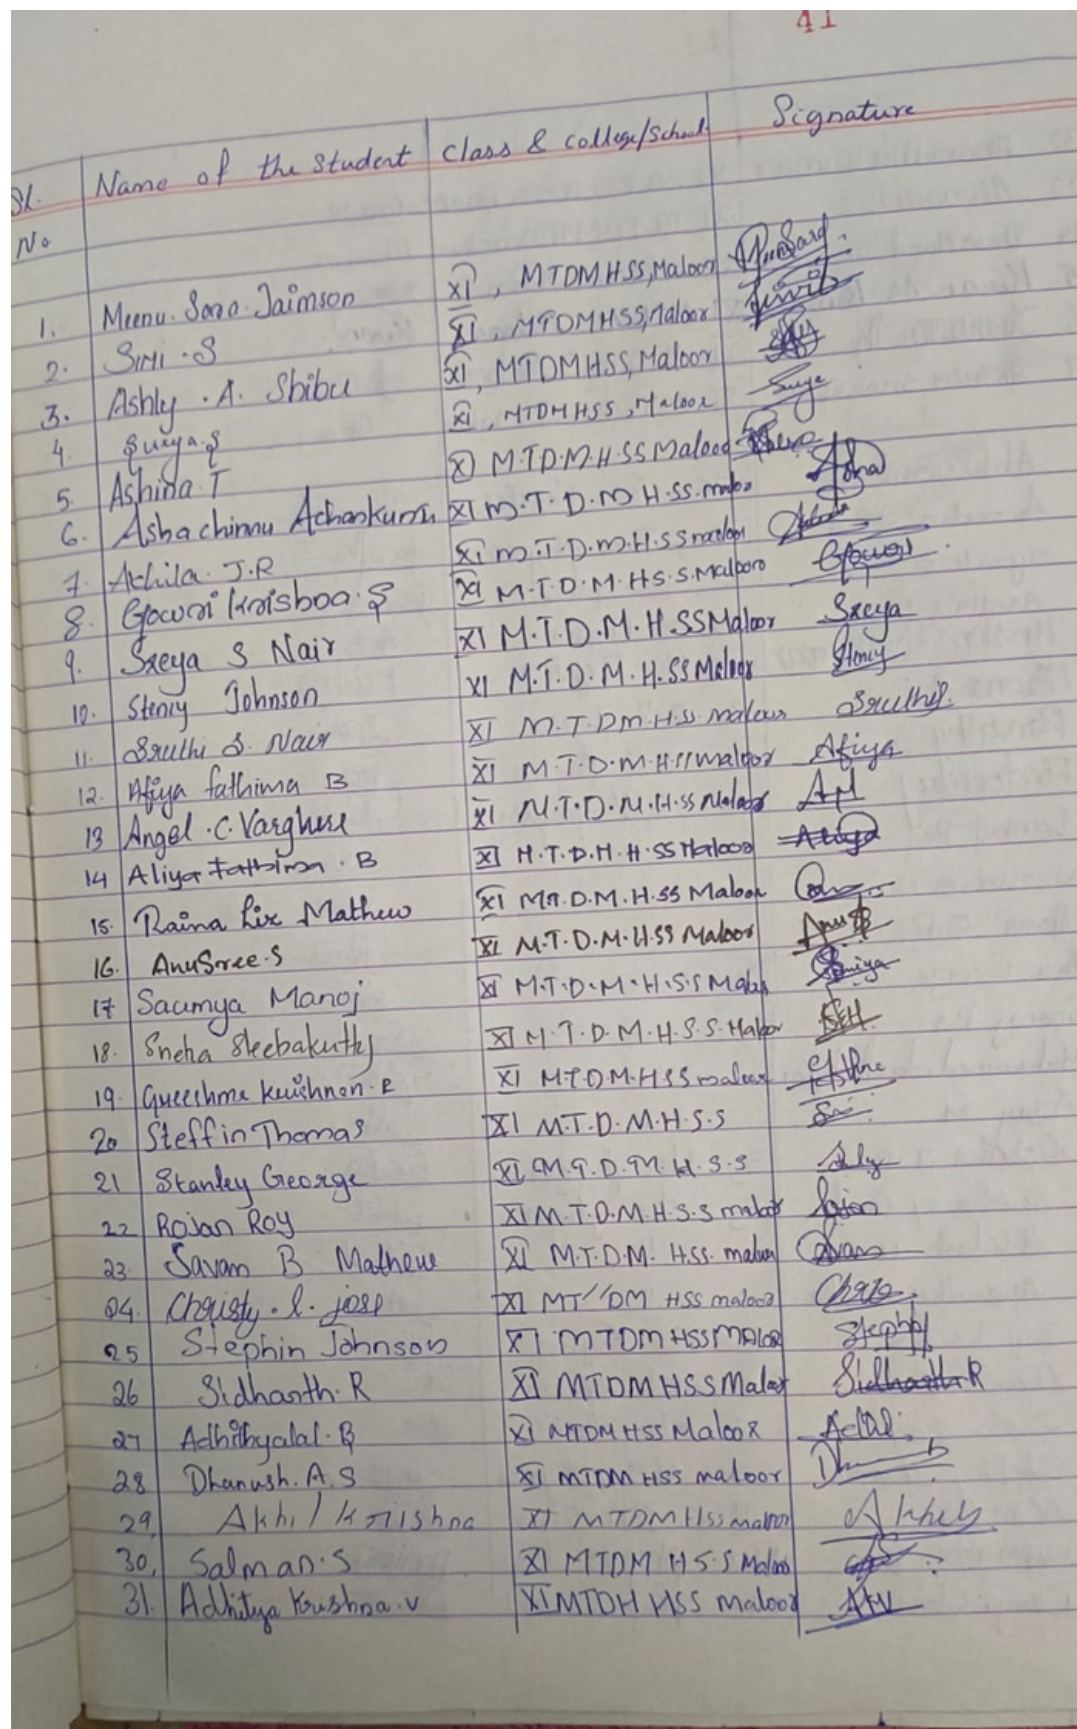 41
Sl. No Name of the Student Class & college/School Signature
1. Meenu Sara Jaimson XI, MTDMHSS, Maloor
2. SIMI . S XI, MTDMHSS, Maloor
3. Ashly . A. Shibu XI, MTDMHSS, Maloor
4. Surya. S XI, MTDMHSS, Maloor
5. Ashina T XI M.T.D.M.H.SS Maloor
6. Asha chinnu XI M.T.D.M H.SS. maloor Asha
7. Achila. J.R XI M.T.D.M.H.SS maloor
8. Gowri Krishna. S XI M.T.D.M.HS.S. Maloor Gowri
9. Sreya S Nair XI M.T.D.M.H.SS Maloor Sreya
10. Stency Johnson XI M.T.D.M.H.SS Maloor Stency
11. Sruthi S. Nair XI M.T.DM.H.SS. maloor Sruthi
12. Afiya fathima B XI M.T.D.M.H.SS maloor Afiya
13 Angel .C. Varghese XI M.T.D.M.H.SS Maloor
14 Aliya Fathima . B XI M.T.D.M.H.SS Maloor Aliya
15. Raina Lix Mathew XI MT.D.M.H.SS Maloor
16. AnuSree.S XI M.T.D.M.H.SS Maloor
17 Saumya Manoj XI M.T.D.M.H.S.S Maloor
18. Sneha Sleebakutty XI M.T.D.M.H.S.S. Maloor
19. Greeshma Krishnan. R XI M.T.D.M.HSS maloor
20 Steffin Thomas XI M.T.D.M.H.S.S
21 Stanley George XI M.T.D.M.H.S.S
22 Rojan Roy XI M.T.D.M.H.S.S maloor Rojan
23. Savan B Mathew XI M.T.D.M. H.SS. maloor
24. Christy . l. jose XI MT DM HSS maloor
25 Stephin Johnson XI MTDM HSS MALOOR
26 Sidhanth. R XI MTDM HSS Maloor Sidhanth R
27 Adhithyalal. B XI MTDM HSS Maloor
28 Dhanush. A. S XI MTDM HSS maloor
29, Akhil krishna XI MTDM HSS maloor
30, Salman. S XI MTDM H S.S Maloor
31. Adhitya Krishna. V XI MTDM HSS maloor